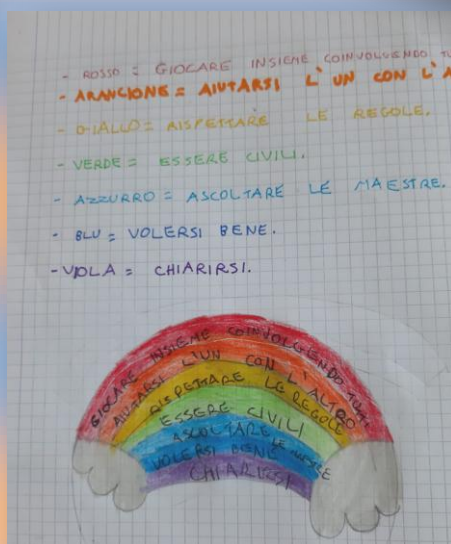 - ROSSO = GIOCARE INSIEME COINVOLGENDO TU
- ARANCIONE = AIUTARSI L'UN CON L'A
- GIALLO = RISPETTARE LE REGOLE.
- VERDE = ESSERE CIVILI.
- AZZURRO = ASCOLTARE LE MAESTRE.
- BLU = VOLERSI BENE.
- VIOLA = CHIARIRSI.
GIOCARE INSIEME COINVOLGENDO TUTTI
AIUTARSI L'UN CON L'ALTRO
RISPETTARE LE REGOLE
ESSERE CIVILI
ASCOLTARE LE MAESTRE
VOLERSI BENE
CHIARIRSI